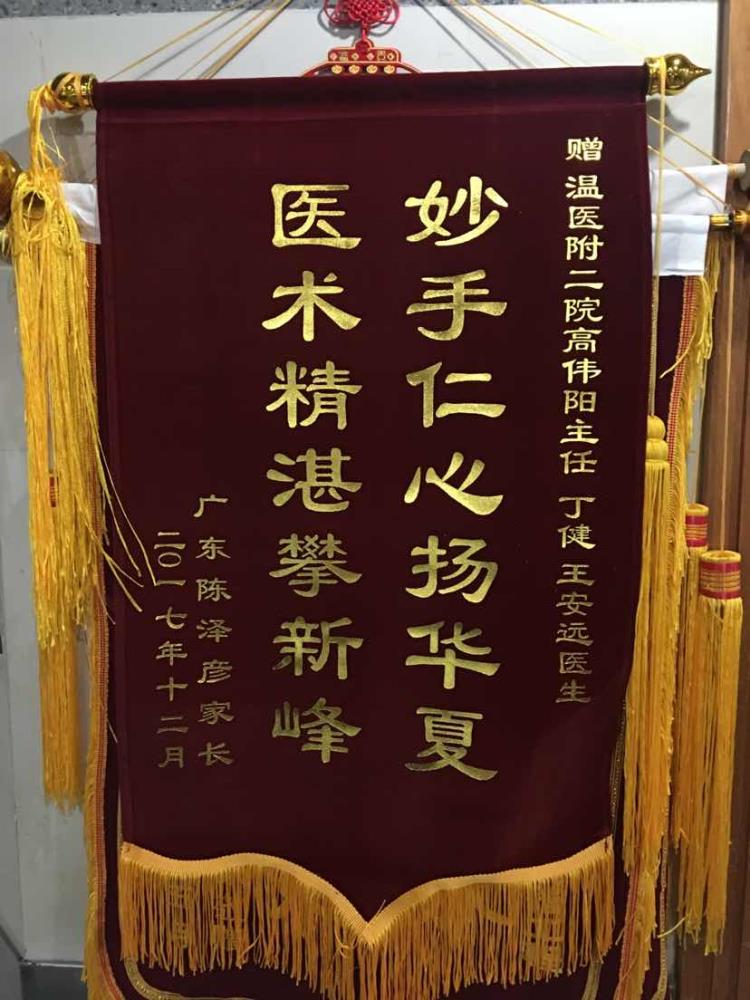 赠 温医附二院高伟阳主任 丁健 王安远医生
妙手仁心扬华夏
医术精湛攀新峰
广东陈泽彦家长
二〇一七年十二月